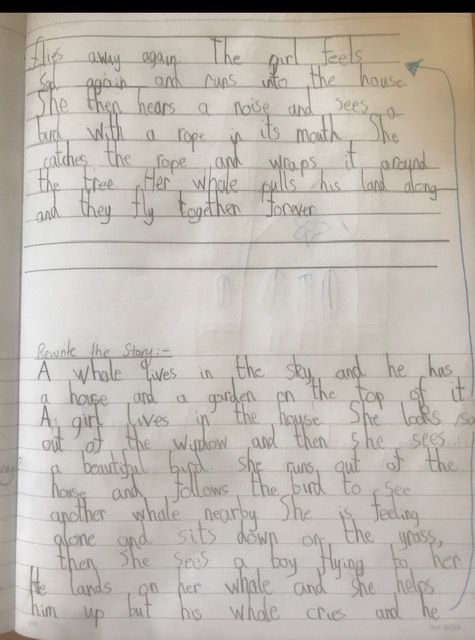 flies away again. The girl feels
sad again and runs into the house
She then hears a noise and sees a
bird with a rope in its mouth She
catches the rope and wraps it around
the tree Her whale pulls his land along
and they fly together forever
Rewrite the Story:-
A whale lives in the sky and he has
a house and a garden on the top of it.
A girl lives in the house She looks
out of the window and then she sees
a beautiful bird. She runs out of the
house and follows the bird to see
another whale nearby She is feeling
alone and sits down on the grass,
then She sees a boy flying to her
He lands on her whale and she helps
him up but his whale cries and he